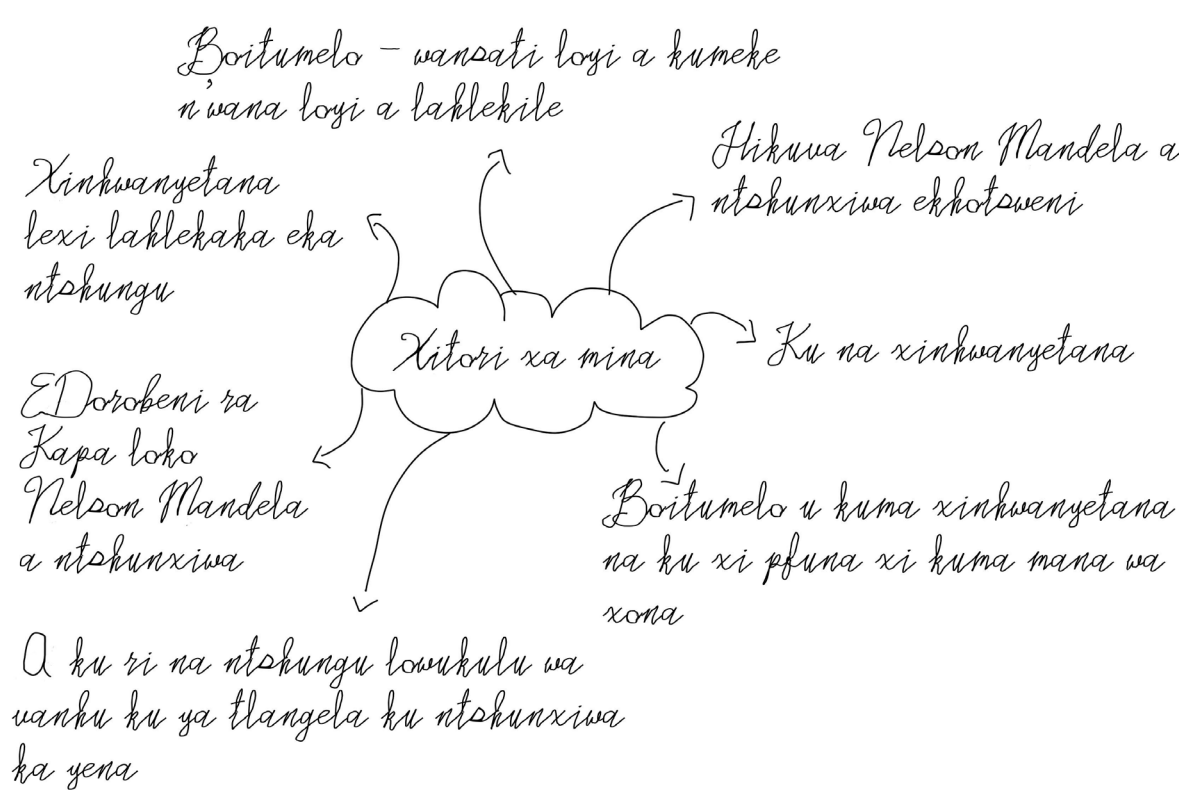 Boitumelo – wansati loyi a kumeke
n'wana loyi a lahlekile
Hikuva Nelson Mandela a
ntshunxiwa ekhotsweni
Xinhwanyetana
lexi lahlekaka eka
ntshungu
Xitori xa mina
Ku na xinhwanyetana
EDorobeni ra
Kapa loko
Nelson Mandela
a ntshunxiwa
Boitumelo u kuma xinhwanyetana
na ku xi pfuna xi kuma mana wa
xona
A ku ri na ntshungu lowukulu wa
vanhu ku ya tlangela ku ntshunxiwa
ka yena